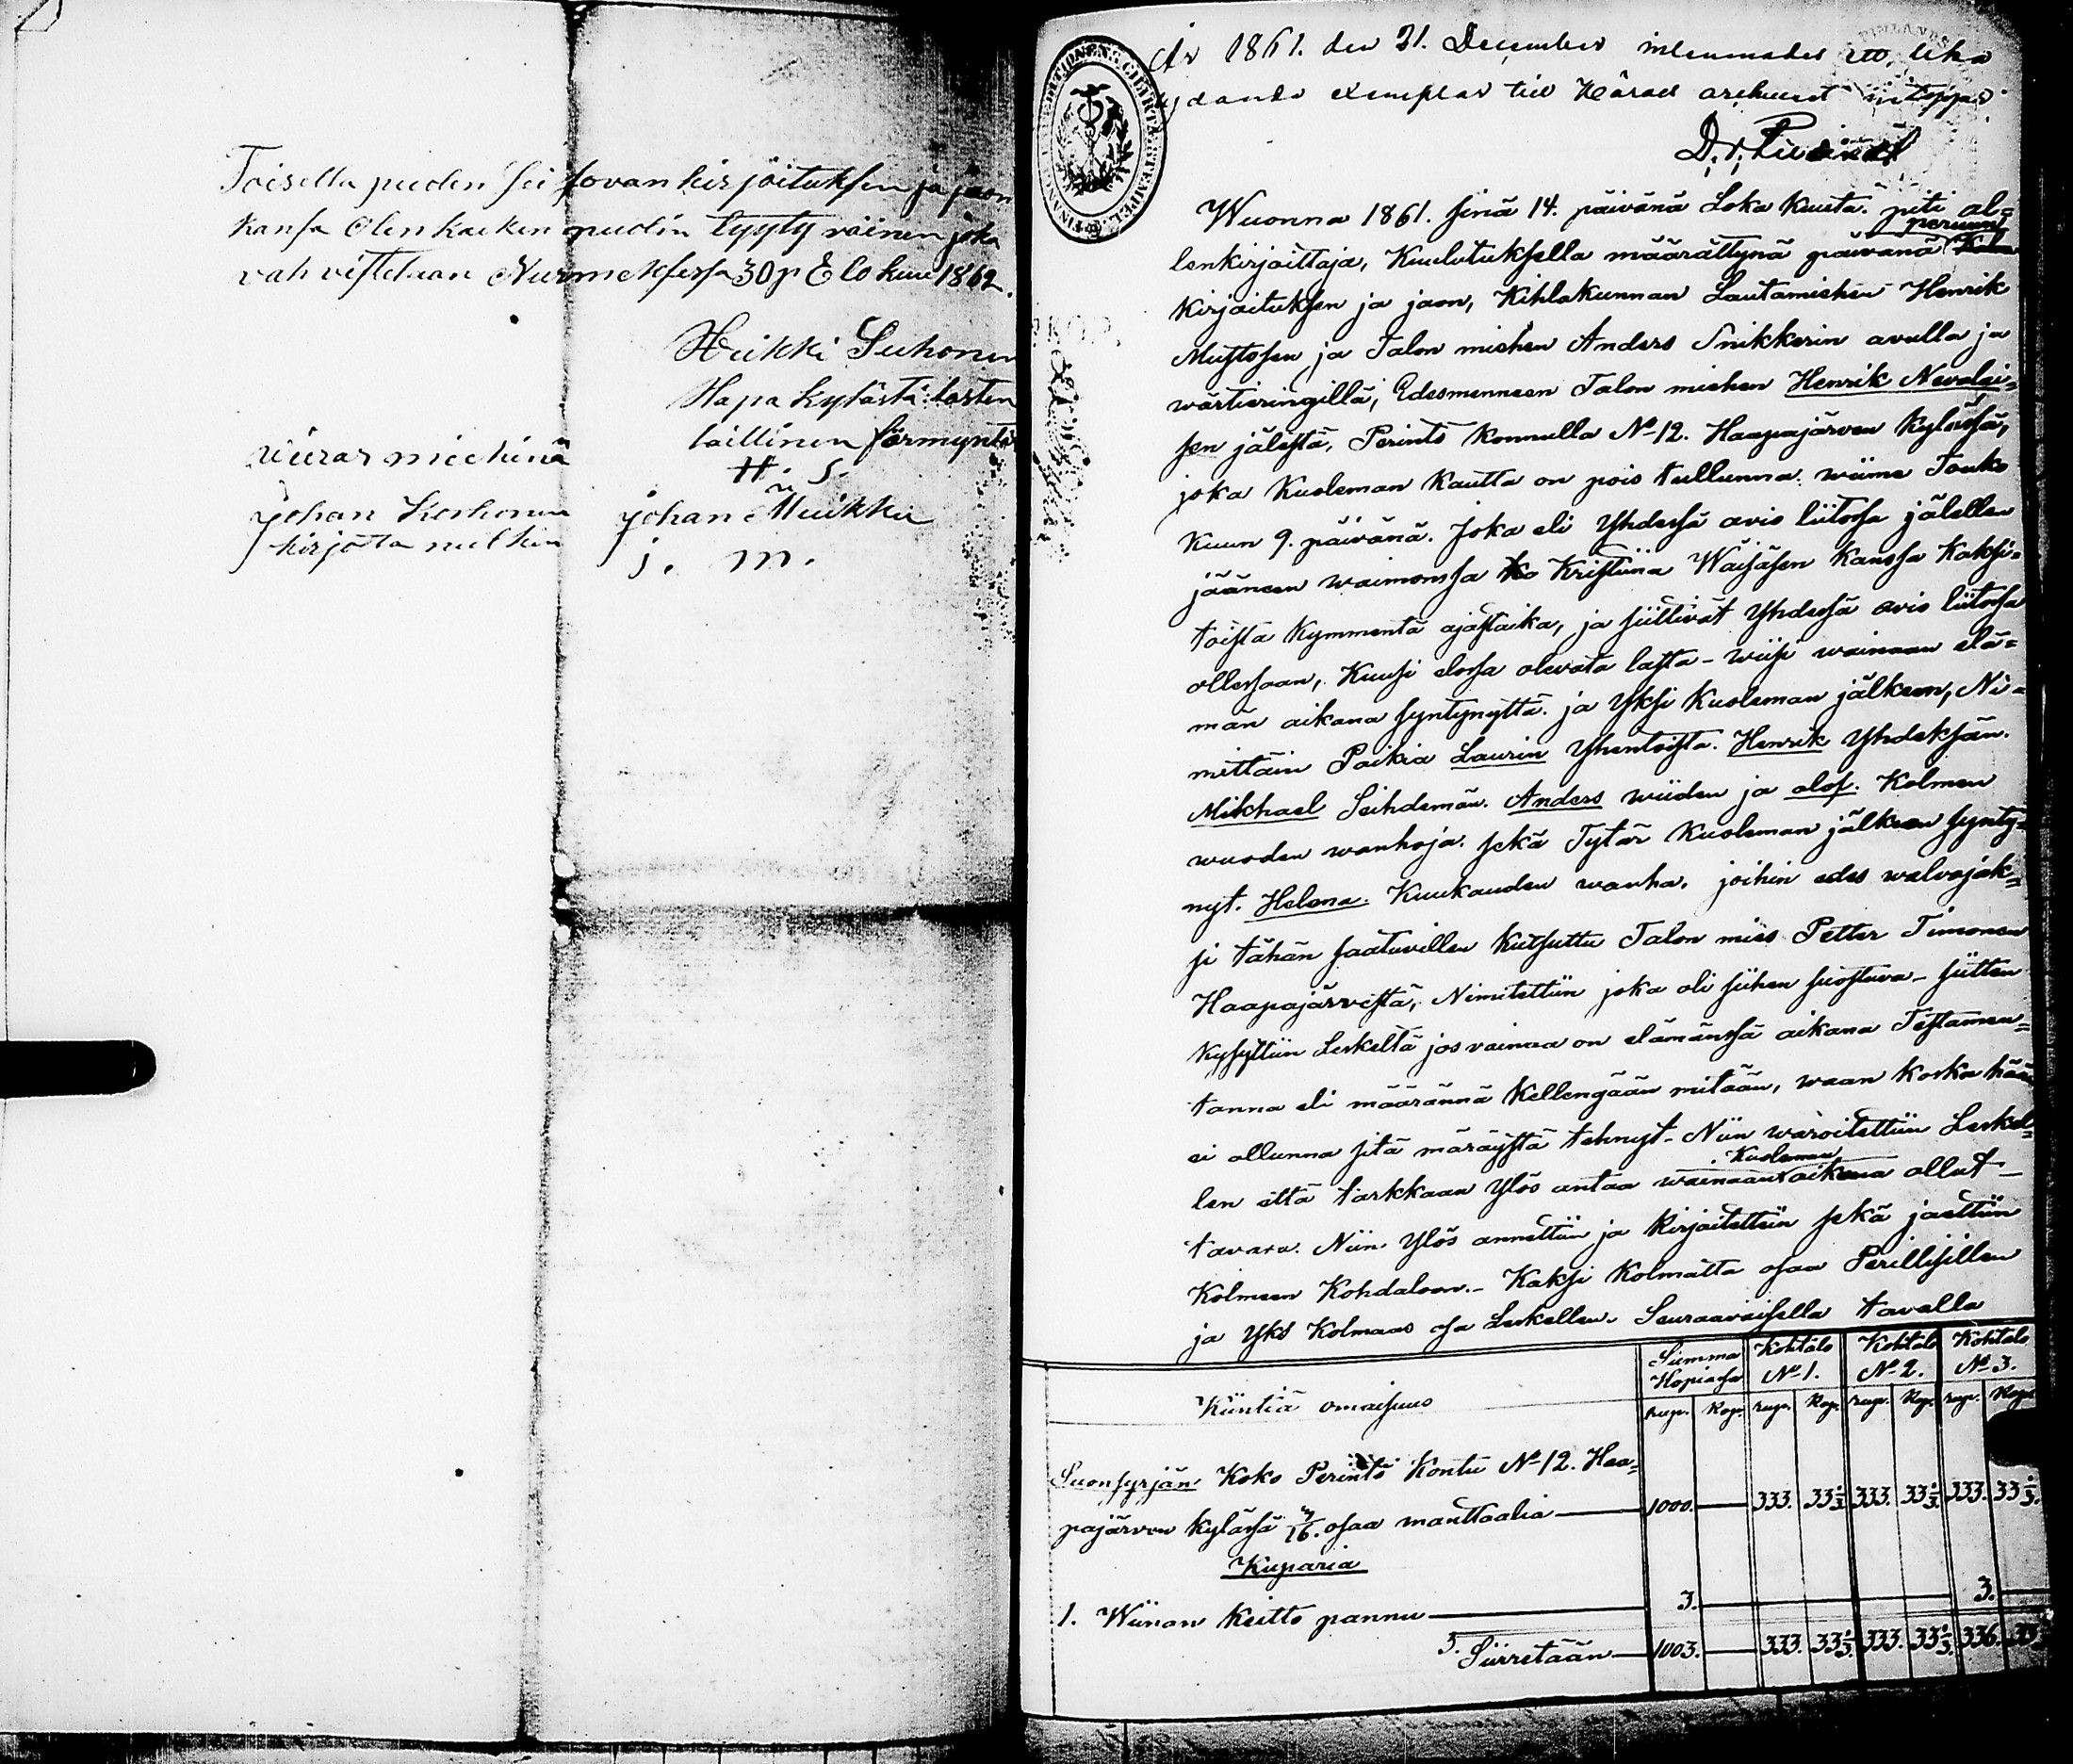 Toisella puolen sei sovan kirjoituksen ja jaon
kansa Olen kaiken puolin tyyty väinen joka
vah vistetaan Nurmeksessa 30 p Elo kuu 1862.
Heikki Suhonen
Hapa kylästä lasten
laillinen förmynt
H. S.
vieras miehinä
Johan Korhonen
kirjotta nut kin
Johan Muikku
j. m.
År 1861. den 31. December inlemnades ett lika
lydande exemplar till Härads
Wuonna 1861. sinä 14. päivänä Loka Kuuta. piti al=
lenkirjoittaja, Kuulutuksella määrättynä päivänä perunn
Kirjoituksen ja jaon, Kihlakunnan Lautamiehen Henrik
Mustosen, ja Talon miehen Anders Snikkerin avulla ja
wärtieringillä, Edesmenneen Talon miehen Henrik Nevalai=
sen jälestä, Perintö Konnulla No 12. Haapajärven Kylässä,
joka Kuoleman Kautta on pois tullunna. wiime Touko
Kuun 9. päivänä. Joka eli Yhdessä avio liitossa jälellen
jääneen waimonsa Kristiina Wäisäsen Kanssa Kaksi=
toista Kymmentä ajastaika, ja siittivät Yhdessä avio liitossa
ollessaan, Kuusi elossa olevata lasta - wiisi wainaan elä=
män aikana syntynyttä. ja Yksi Kuoleman jälkeen, Ni=
mittäin Poikia Laurin Yhentoista. Henrik Yhdeksän.
Mikhael Seihdemän. Anders wiiden ja olof. Kolmen
wuoden wanhoja. sekä Tytär Kuoleman jälkeen synty=
nyt. Helena. Kuukauden wanha. joihin edes walvojak=
si tähän saatuvillen Kutsuttu Talon mies Petter Timonen
Haapajärvestä, Nimitettiin joka oli siihen suostuva - siitten
Kysyttiin Leskeltä jos vainaa on elämänsä aikana Testamen=
tanna eli määrännä Kellengään mitään, waan koska hän
ei ollunna sitä märäystä tehnyt - Niin waroitettiin Leskel=
len että tarkkaan Ylös antaa wainaan Kuoleman aikana ollut
tavara. Niin Ylös annettiin ja Kirjoitettiin sekä jaettiin
Kolmeen Kohdaloon. - Kaksi Kolmatta osaa Perillisillen
ja Yks Kolmaas osa Leskellen. Seuraavaisella tavalla
Kiintiä omaisuus
Summa Hopiassa
Kohtalo No 1.
Kohtalo No 2.
Kohtalo No 3.
rup. Kop. rup. Kop. rup. Kop. rup. Kop.
Suonsyrjän Koko Perintö Kontu No 12. Haa=
pajärven Kylässä osaa manttaalia 1000. 333. 33 1/3. 333. 33 1/3. 333. 33 1/3.
Kuparia
1. Wiinan Keitto pannu 3. 3.
Siirretään 1003. 333. 33 1/3. 333. 33 1/3. 336. 33